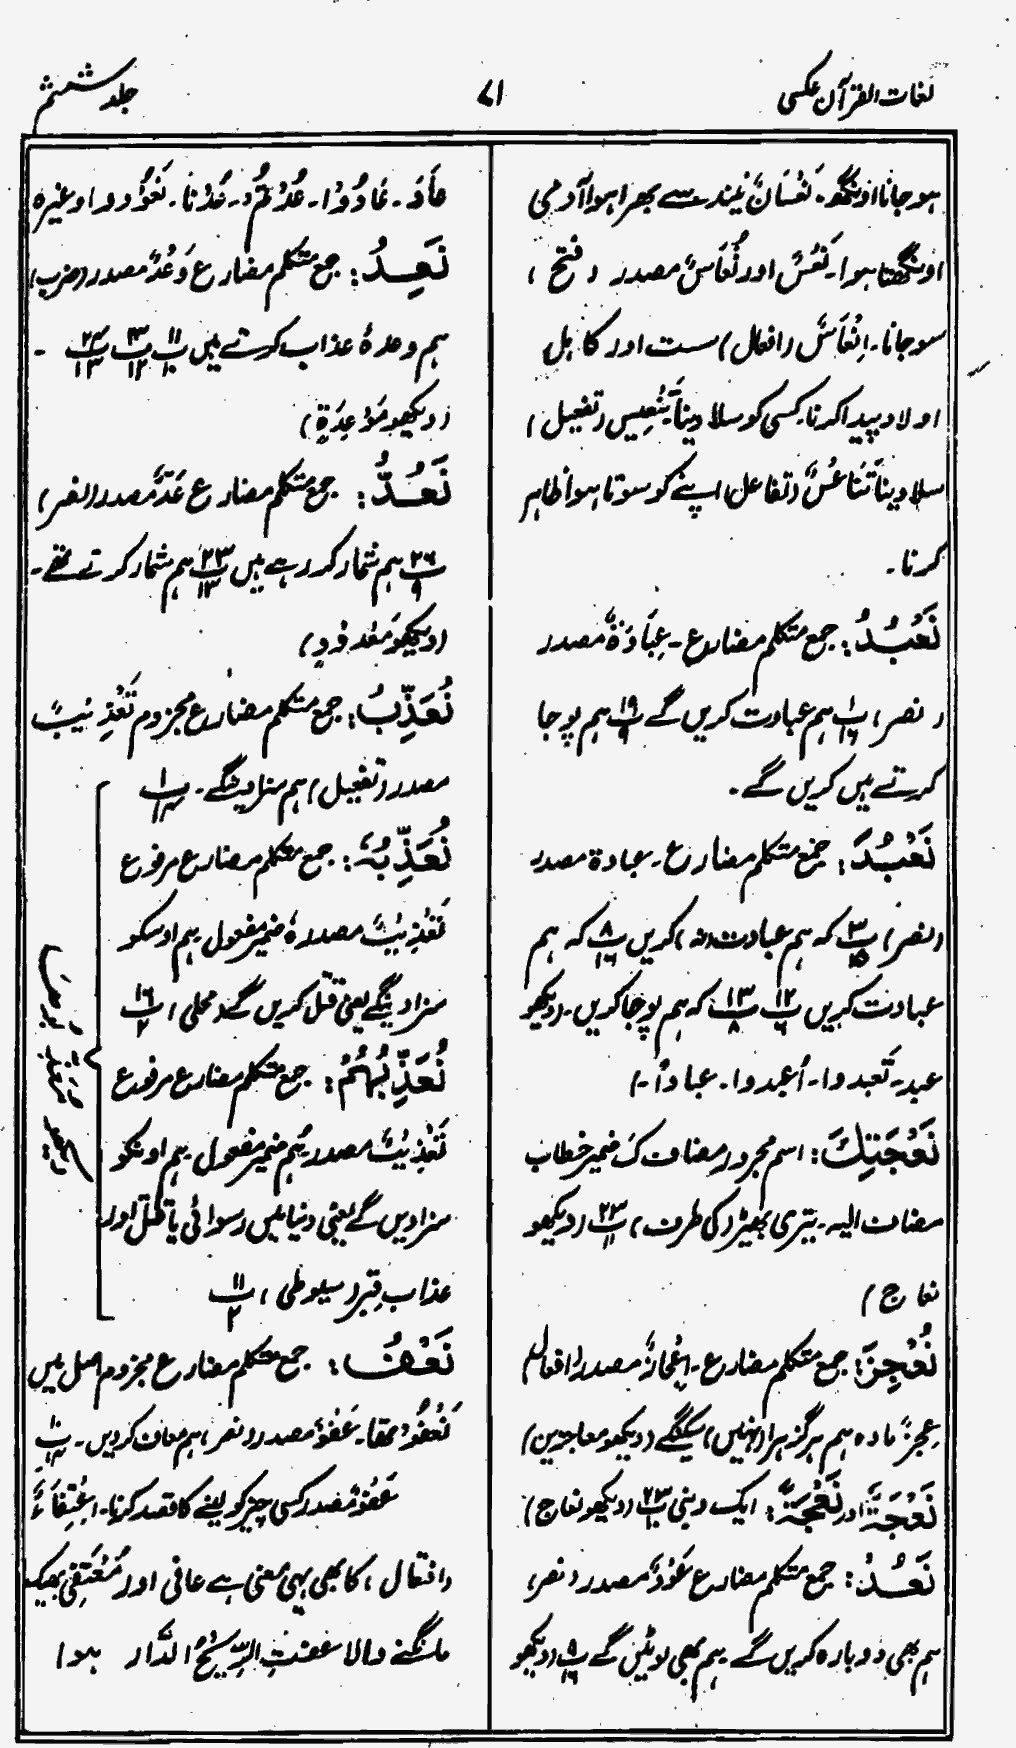 لغات القرآن عکسی
۷۱
جلد ششم
ہو جانا اونگھ۔ نَعْسَانٌ نیند سے بھرا ہوا آدمی
اونگھتا ہوا۔ نَعْسٌ اور نُعَاسٌ مصدر (فتح)
سو جانا۔ اِنْعَاسٌ (افعال) سست اور کاہل
اولاد پیدا کرنا۔ کسی کو سلا دینا۔ تَنْعِیْس (تفعیل)
سلا دینا تَنَاعُسٌ (تفاعل) اپنے کو سوتا ہوا ظاہر
کرنا۔
نَعْبُدُ: جمع متکلم مضارع۔ عِبَادَۃٌ مصدر
(نصر) پ ۱ ہم عبادت کریں گے پ ۱۹ ۹ ہم پوجا
کرتے ہیں کریں گے۔
نَعْبُدَ: جمع متکلم مضارع۔ عبادۃ مصدر
(نصر) پ ۳ ۱۵ کہ ہم عبادت (نہ) کریں پ ۸ ۱۶ کہ ہم
عبادت کریں پ ۱۲ ۶ پ ۱۳ ۸ کہ ہم پوجا کریں۔ (دیکھو
عبد۔ تَعبدوا۔ اُعبدوا۔ عباداً۔)
نَعْجَتِکَ: اسم مجرور مضاف کَ ضمیر خطاب
مضاف الیہ۔ تیری بھیڑ (کی طرف) پ ۲۳ ۱۱ (دیکھو
نعاج)
نُعْجِزَ: جمع متکلم مضارع۔ اِعْجَازٌ مصدر (افعال)
عِجزٌ مادہ ہم ہرگز ہرا (نہیں) سکینگے (دیکھو معاجزین)
نَعْجَۃً اور نَعْجَۃٌ: ایک دنبی پ ۲۳ (دیکھو نعاج)
نَعُدْ: جمع متکلم مضارع عَوْدٌ مصدر (نصر)
ہم بھی دوبارہ کریں گے ہم بھی لوٹیں گے پ ۹ ۱۶ (دیکھو
عَادَ۔ عَادُوْا۔ عُدْتُمْ۔ عُدْنَا۔ تَعُوْدُوا وغیرہ
نَعِدُ: جمع متکلم مضارع وَعْدٌ مصدر (ضرب)
ہم وعدۂ عذاب کرتے ہیں پ ۱۱ ۱۰ پ ۱۳ ۱۲ پ ۲۴ ۱۳ ۔
(دیکھو مَوْعِدَۃٍ)
نَعُدُّ: جمع متکلم مضارع عَدٌّ مصدر (نصر)
پ ۲۶ ۹ ہم شمار کر رہے ہیں پ ۲۳ ۱۳ ہم شمار کرتے تھے۔
(دیکھو مَعْدُوْدٍ)
نُعَذِّبْ: جمع متکلم مضارع مجزوم تَعْذِیْبٌ
مصدر (تفعیل) ہم سزا دینگے۔
نُعَذِّبُہٗ: جمع متکلم مضارع مرفوع
تَعْذِیْبٌ مصدر ہٗ ضمیر مفعول ہم اوسکو
سزا دینگے یعنی قتل کریں گے (محلی) پ ۱۶ ۲
نُعَذِّبُہُمْ: جمع متکلم مضارع مرفوع
تَعْذِیْبٌ مصدر ہُم ضمیر مفعول ہم اونکو
سزا دیں گے یعنی دنیا میں رسوائی یا قتل اور
عذاب قبر (سیوطی) پ ۱۱ ۲
دیکھو
نَعْفُ: جمع متکلم مضارع مجزوم اصل میں
نَعْفُوْ تھا۔ عَفْوٌ مصدر (نصر) ہم معاف کردیں۔ پ ۱۰
عَفْوٌ مصدر کسی چیز کو لینے کا قصد کرنا۔ اِعْتِفَاءٌ
(افتعال) کا بھی یہی معنی ہے عافی اور مُعْتَفِی بھیک
مانگنے والا عفتِ الرِّیْحُ الدَّارَ ہوا